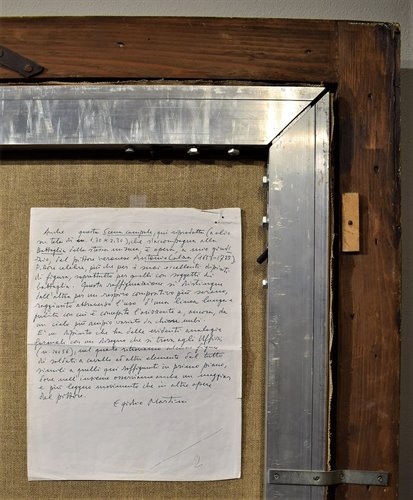 Anche questa Scena campale, qui riprodotta (a olio
su tela di m 1,30 x 2,30), che s'accompagna alla
Battaglia della stessa misura, è opera, a mio giudi-
zio, del pittore veronese Antonio Calza (1653-1725).
Pittore celebre, più che per i suoi eccellenti dipinti
di figura, soprattutto per quelli con soggetti di
battaglia. Questa raffigurazione si distingue
dall'altra per un respiro compositivo più sereno,
raggiunto attraverso l'uso d'una linea lunga e
quieta con cui è compito l'orizzonte e, ancora, da
un cielo più ampio venato da chiare nubi.
È un dipinto che ha delle evidenti analogie
formali con un disegno che si trova agli Uffizi
(n. ), nel quale ritroviamo alcune figure
di soldati a cavallo ed altri elementi del tutto
simili a quelli qui raffigurati in primo piano,
dove nell'insieme osserviamo anche un maggior
e più leggero movimento che in altre opere
del pittore.
Egidio Martini
2